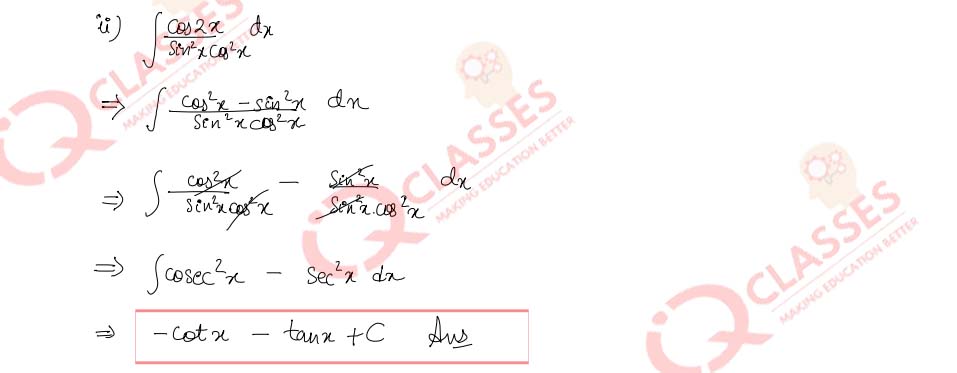 ii) ∫ cos2x / sin²x cos²x dx
⇒ ∫ cos²x − sin²x / sin²x cos²x dx
⇒ ∫ cos²x / sin²x cos²x − sin²x / sin²x.cos²x dx
⇒ ∫ cosec²x − sec²x dx
⇒ −cotx − tanx + C Ans
IQ CLASSES
MAKING EDUCATION BETTER
IQ CLASSES
MAKING EDUCATION BETTER
IQ CLASSES
MAKING EDUCATION BETTER